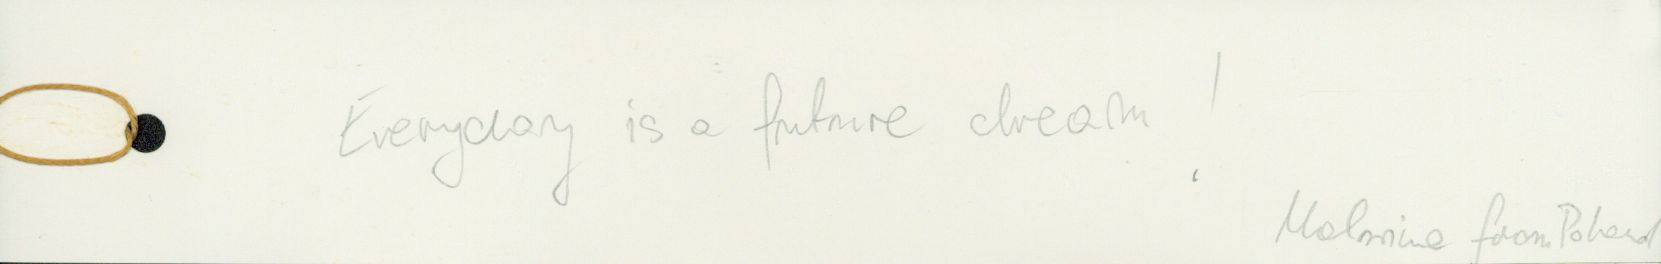 Everyday is a future dream!
Malwina from Poland